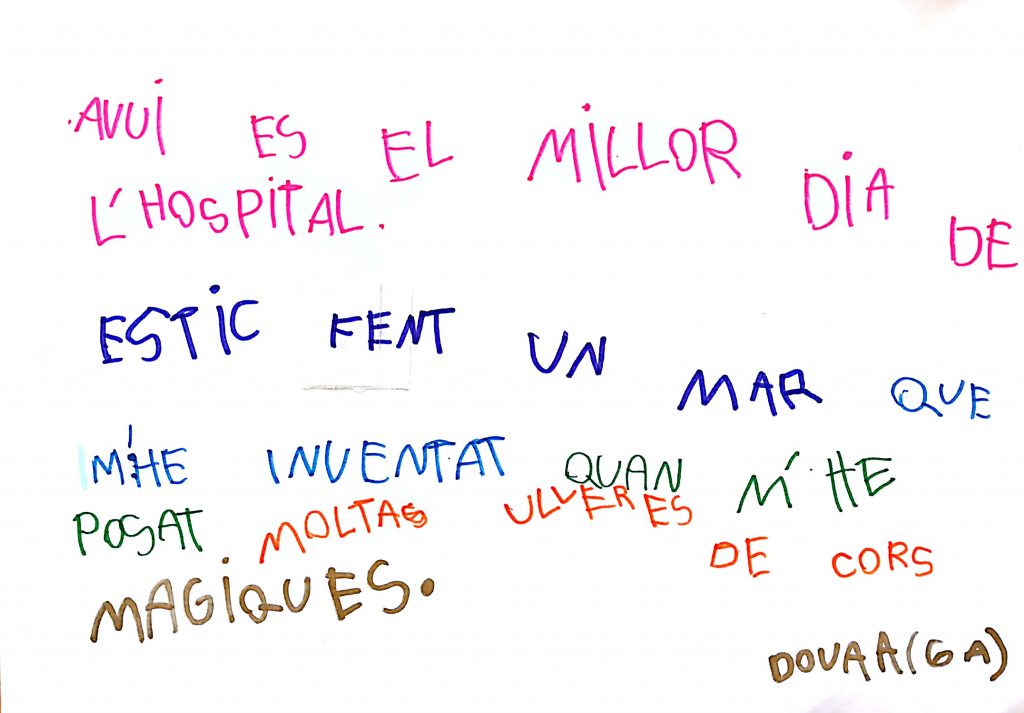 AVUI ES EL MILLOR DIA DE
L'HOSPITAL.
ESTIC FENT UN MAR QUE
M'HE INVENTAT QUAN M'HE
POSAT MOLTAS ULVERES DE CORS
MAGIQUES.
DOUAA (6 A)